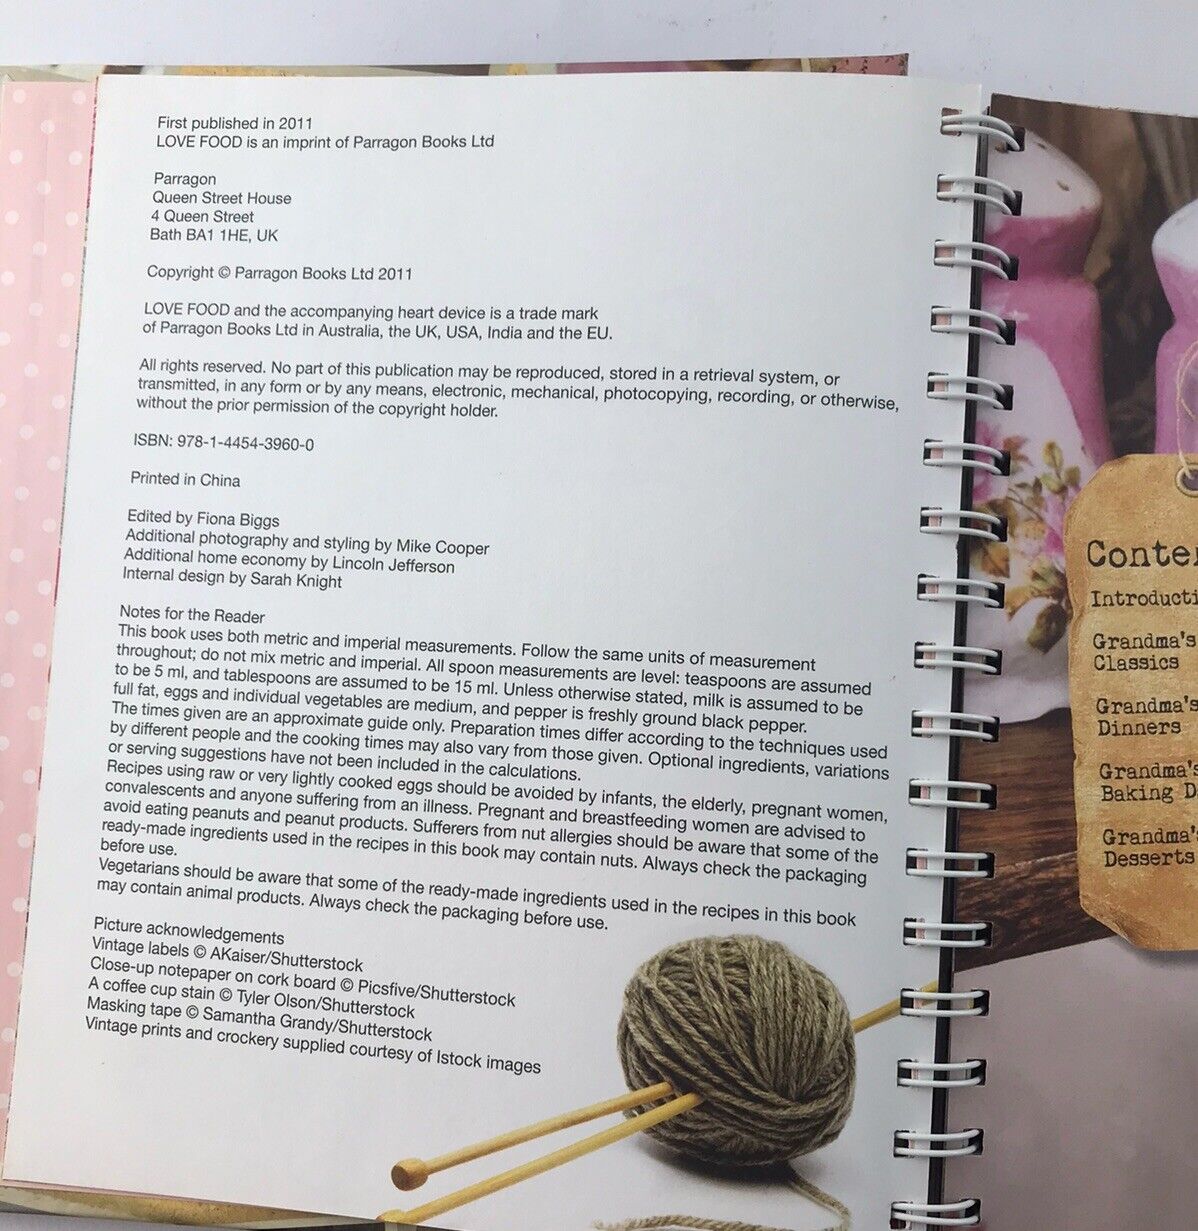 First published in 2011
LOVE FOOD is an imprint of Parragon Books Ltd
Parragon
Queen Street House
4 Queen Street
Bath BA1 1HE, UK
Copyright © Parragon Books Ltd 2011
LOVE FOOD and the accompanying heart device is a trade mark
of Parragon Books Ltd in Australia, the UK, USA, India and the EU.
All rights reserved. No part of this publication may be reproduced, stored in a retrieval system, or
transmitted, in any form or by any means, electronic, mechanical, photocopying, recording, or otherwise,
without the prior permission of the copyright holder.
ISBN: 978-1-4454-3960-0
Printed in China
Edited by Fiona Biggs
Additional photography and styling by Mike Cooper
Additional home economy by Lincoln Jefferson
Internal design by Sarah Knight
Notes for the Reader
This book uses both metric and imperial measurements. Follow the same units of measurement
throughout; do not mix metric and imperial. All spoon measurements are level: teaspoons are assumed
to be 5 ml, and tablespoons are assumed to be 15 ml. Unless otherwise stated, milk is assumed to be
full fat, eggs and individual vegetables are medium, and pepper is freshly ground black pepper.
The times given are an approximate guide only. Preparation times differ according to the techniques used
by different people and the cooking times may also vary from those given. Optional ingredients, variations
or serving suggestions have not been included in the calculations.
Recipes using raw or very lightly cooked eggs should be avoided by infants, the elderly, pregnant women,
convalescents and anyone suffering from an illness. Pregnant and breastfeeding women are advised to
avoid eating peanuts and peanut products. Sufferers from nut allergies should be aware that some of the
ready-made ingredients used in the recipes in this book may contain nuts. Always check the packaging
before use.
Vegetarians should be aware that some of the ready-made ingredients used in the recipes in this book
may contain animal products. Always check the packaging before use.
Picture acknowledgements
Vintage labels © AKaiser/Shutterstock
Close-up notepaper on cork board © Picsfive/Shutterstock
A coffee cup stain © Tyler Olson/Shutterstock
Masking tape © Samantha Grandy/Shutterstock
Vintage prints and crockery supplied courtesy of Istock images
Conte
Introducti
Grandma's
Classics
Grandma's
Dinners
Grandma's
Baking D
Grandma's
Desserts